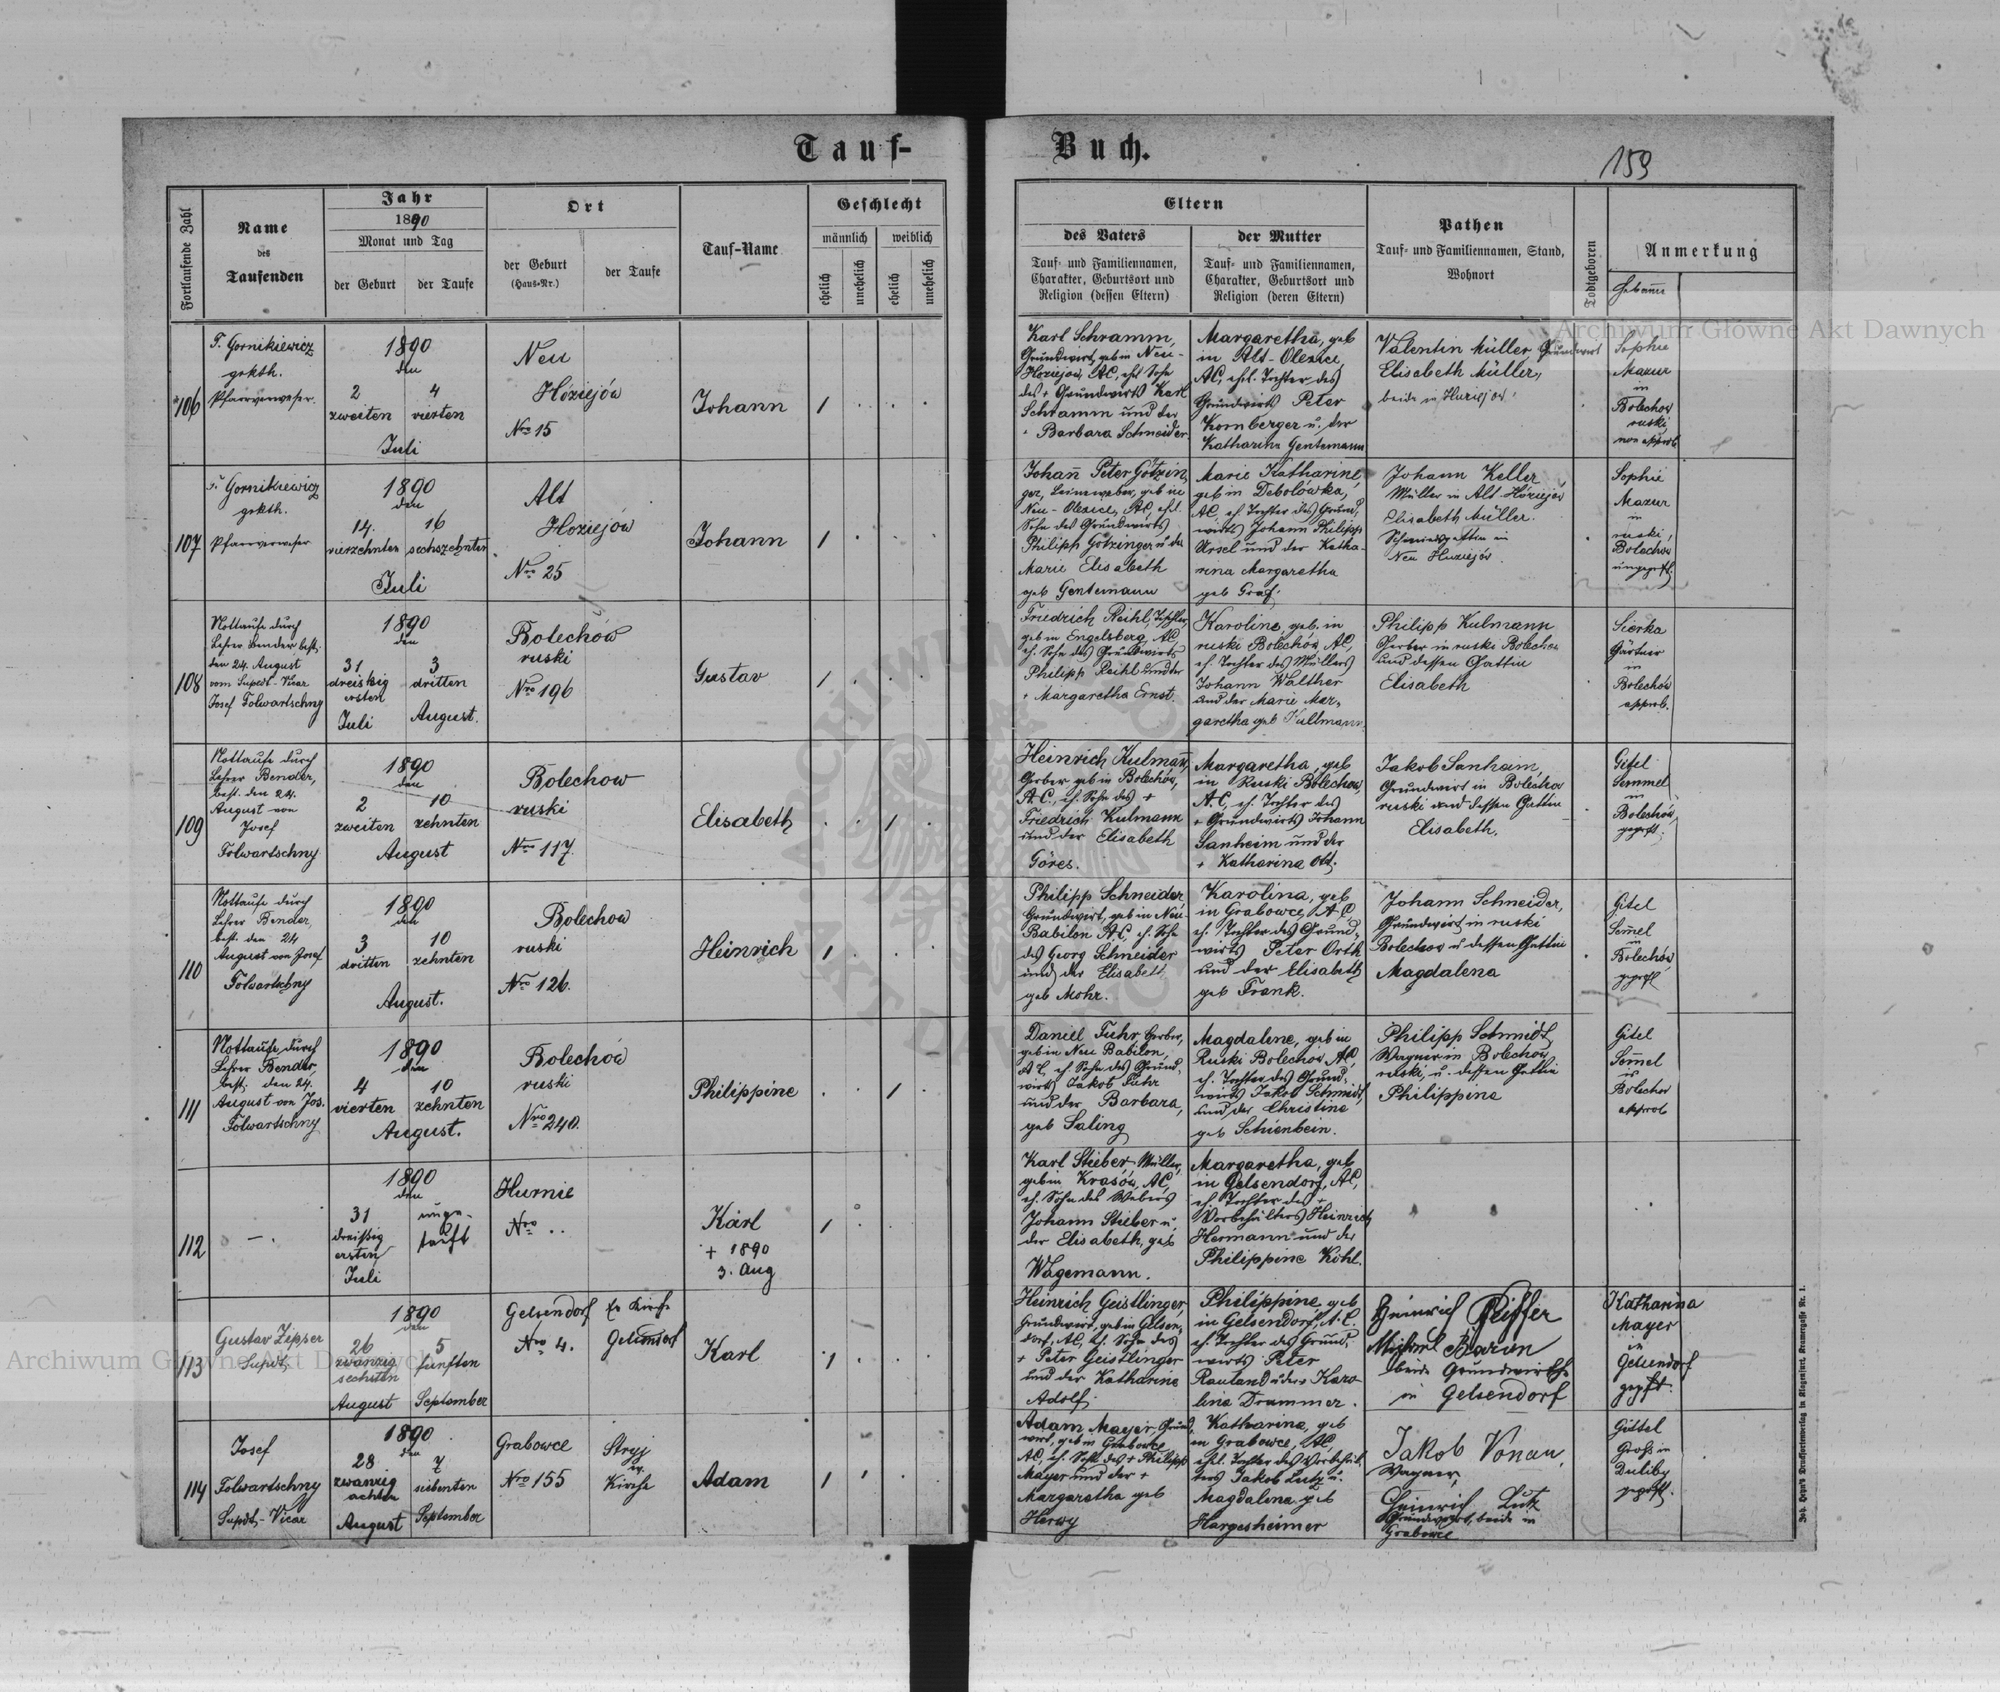 Tauf-
Buch.
159
Fortlaufende Zahl
Name
des
Taufenden
Jahr
1890
Monat und Tag
der Geburt
der Taufe
Ort
der Geburt
(Haus-Nr.)
der Taufe
Tauf-Name
Geschlecht
männlich
weiblich
ehelich
unehelich
ehelich
unehelich
Eltern
des Vaters
Tauf- und Familiennamen,
Charakter, Geburtsort und
Religion (dessen Eltern)
der Mutter
Tauf- und Familiennamen,
Charakter, Geburtsort und
Religion (deren Eltern)
Pathen
Tauf- und Familiennamen, Stand,
Wohnort
Todtgeboren
Anmerkung
Hebamme
106
T. Gornikiewicz
grkth.
Pfarrverweser
1890
den
2
zweiten
4
vierten
Juli
Neu
Hoziejów
Nro 15
Johann
1
Karl Schramm,
Grundwirt, geb in Neu-
Hoziejow, AC, ehl Sohn
des + Grundwirts Karl
Schramm und der
Barbara Schneider
Margaretha, geb
in Alt-Olesice,
AC, ehel. Tochter des
Grundwirts Peter
Kornberger u. der
Katharine Gentemann
Valentin Müller, Grundwirt
Elisabeth Müller,
beide in Huziejow
Sophie
Mazur
in
Bolechow
ruski,
non approb.
107
T. Gornikiewicz
grkth.
Pfarrverweser
1890
den
14.
vierzehnten
16
sechszehnten
Juli
Alt
Hoziejów
Nro 25
Johann
1
Johann Peter Götzin
ger, Leinweber, geb in
Neu-Olesice, AC, ehl.
Sohn des Grundwirts
Philipp Götzinger u der
Marie Elisabeth
geb Gentemann
Marie Katharine,
geb in Debolówka,
AC, eh Tochter des Grund,
wirts Johann Philipp
Ursel und der Katha-
rina Margaretha
geb Graf.
Johann Keller
Müller in Alt-Hoziejów
Elisabeth Müller.
Schmiedgattin in
Neu Huziejów.
Sophie
Mazur
in
ruski,
Bolechow
ungeprft.
108
Nottaufe durch
Lehrer Bender, best.
den 24. August
vom Supdt-Vicar
Josef Folwartschny
1890
den
31
dreissig
ersten
Juli
3
dritten
August.
Bolechów
ruski
Nro 196
Gustav
1
Friedrich Reihl, Tischler,
geb in Engelsberg, AC,
eh. Sohn des Grundwirts
Philipp Reihl und der
+ Margaretha Ernst.
Karoline, geb. in
ruski Bolechów, AC,
eh. Tochter des Müllers
Johann Walther
und der Marie Mar-
garetha geb Kullmann.
Philipp Kulmann
Gerber in ruski Bolechow
und dessen Gattin
Elisabeth
Sierka
Gärtner
in
Bolechów
approb.
109
Nottaufe durch
Lehrer Bender,
best. den 24.
August von
Josef
Folwartschny
1890
den
2
zweiten
10
zehnten
August
Bolechow
ruski
Nro 117
Elisabeth
1
Heinrich Kulmann,
Gerber geb in Bolechów,
A.C., eh. Sohn des +
Friedrich Kulmann
und der Elisabeth
Göres.
Margaretha, geb
in Ruski Bolechow,
A.C, eh. Tochter des
+ Grundwirts Johann
Sanheim und der
+ Katharina Ott.
Jakob Sanheim,
Grundwirt in Bolechow
ruski und dessen Gattin
Elisabeth.
Gitel
Semmel
in
Bolechów,
geprft.
110
Nottaufe durch
Lehrer Bender,
best. den 24
August von Josef
Folwartschny
1890
den
3
dritten
10
zehnten
August.
Bolechow
ruski
Nro 126.
Heinrich
1
Philipp Schneider,
Grundwirt, geb in Neu-
Babilon AC, eh. Sohn
des Georg Schneider
und der Elisabeth
geb Mohr.
Karolina, geb
in Grabowce, A.C,
eh. Tochter des Grund-
wirts Peter Orth
und der Elisabeth
geb Frank.
Johann Schneider,
Grundwirt in ruski
Bolechow u dessen Gattin
Magdalena
Gitel
Semel
in
Bolechów
geprft
111
Nottaufe durch
Lehrer Bender,
best. den 24.
August von Jos.
Folwartschny
1890
den
4
vierten
10
zehnten
August.
Bolechów
ruski
Nro 240.
Philippine
1
Daniel Fuhr, Gerber,
geb in Neu Babilon,
AC, eh Sohn des Grund-
wirts Jakob Fuhr
und der Barbara,
geb Saling
Magdalene, geb in
Ruski Bolechow, AC,
eh. Tochter des Grund-
wirts Jakob Schmidt,
und der Christine
geb Schienbein.
Philipp Schmidt,
Wagner in Bolechow
ruski, u. dessen Gattin
Philippine
Gitel
Semel
in
Bolechow
approb
112
1890
den
31
dreißig
ersten
Juli
unge-
tauft
Hurnie
Nro ..
Karl
+ 1890
3. Aug
1
Karl Stieber, Müller,
geb in Krasów, AC,
eh. Sohn des Webers
Johann Stieber u.
der Elisabeth, geb
Wagemann.
Margaretha, geb
in Gelsendorf, AC,
eh Tochter des +
Vorbehälters Heinrich
Hermann und der
Philippine Köhl.
113
Gustav Zipser
Supdt.
1890
den
26
zwanzig
sechsten
August
5
fünften
September
Gelsendorf
Nro 4.
Ev Kirche
Gelsendorf
Karl
1
Heinrich Geistlinger,
Grundwirt, geb in Gelsen,
dorf, AC, eh Sohn des
+ Peter Geistlinger
und der Katharine
Adolf.
Philippine, geb
in Gelsendorf, A.C.
eh. Tochter des Grund,
wirts Peter
Rauland u der + Karo
lina Drummer.
Heinrich Peiffer
Michael Baron
beide Grundwirthe
in Gelsendorf
Katharina
Mayer
in
Gelsendorf
geprft.
114
Josef
Folwartschny
Supdt-Vicar
1890
den
28
zwanzig
achten
August
7
siebenten
September
Grabowce
Nro 155
Stryj
ev.
Kirche
Adam
1
Adam Mayer, Grund,
wirt, geb in Grabowce
AC, eh. Sohn des + Philipp
Mayer und der +
Margaretha geb
Herwy
Katharina, geb
in Grabowce, AC,
ehl. Tochter des Vorbehäl,
ters Jakob Lutz u.
Magdalena geb
Hargesheimer
Jakob Vonau,
Wagner,
Heinrich Lutz
Grundwirt, beide in
Grabowce
Gittel
Groß in
Duliby
geprft.
Joh. Heyn's Drucksortenverlag in Klagenfurt, Kramergasse Nr. 1.
Archiwum Główne Akt Dawnych
Archiwum Główne Akt Dawnych